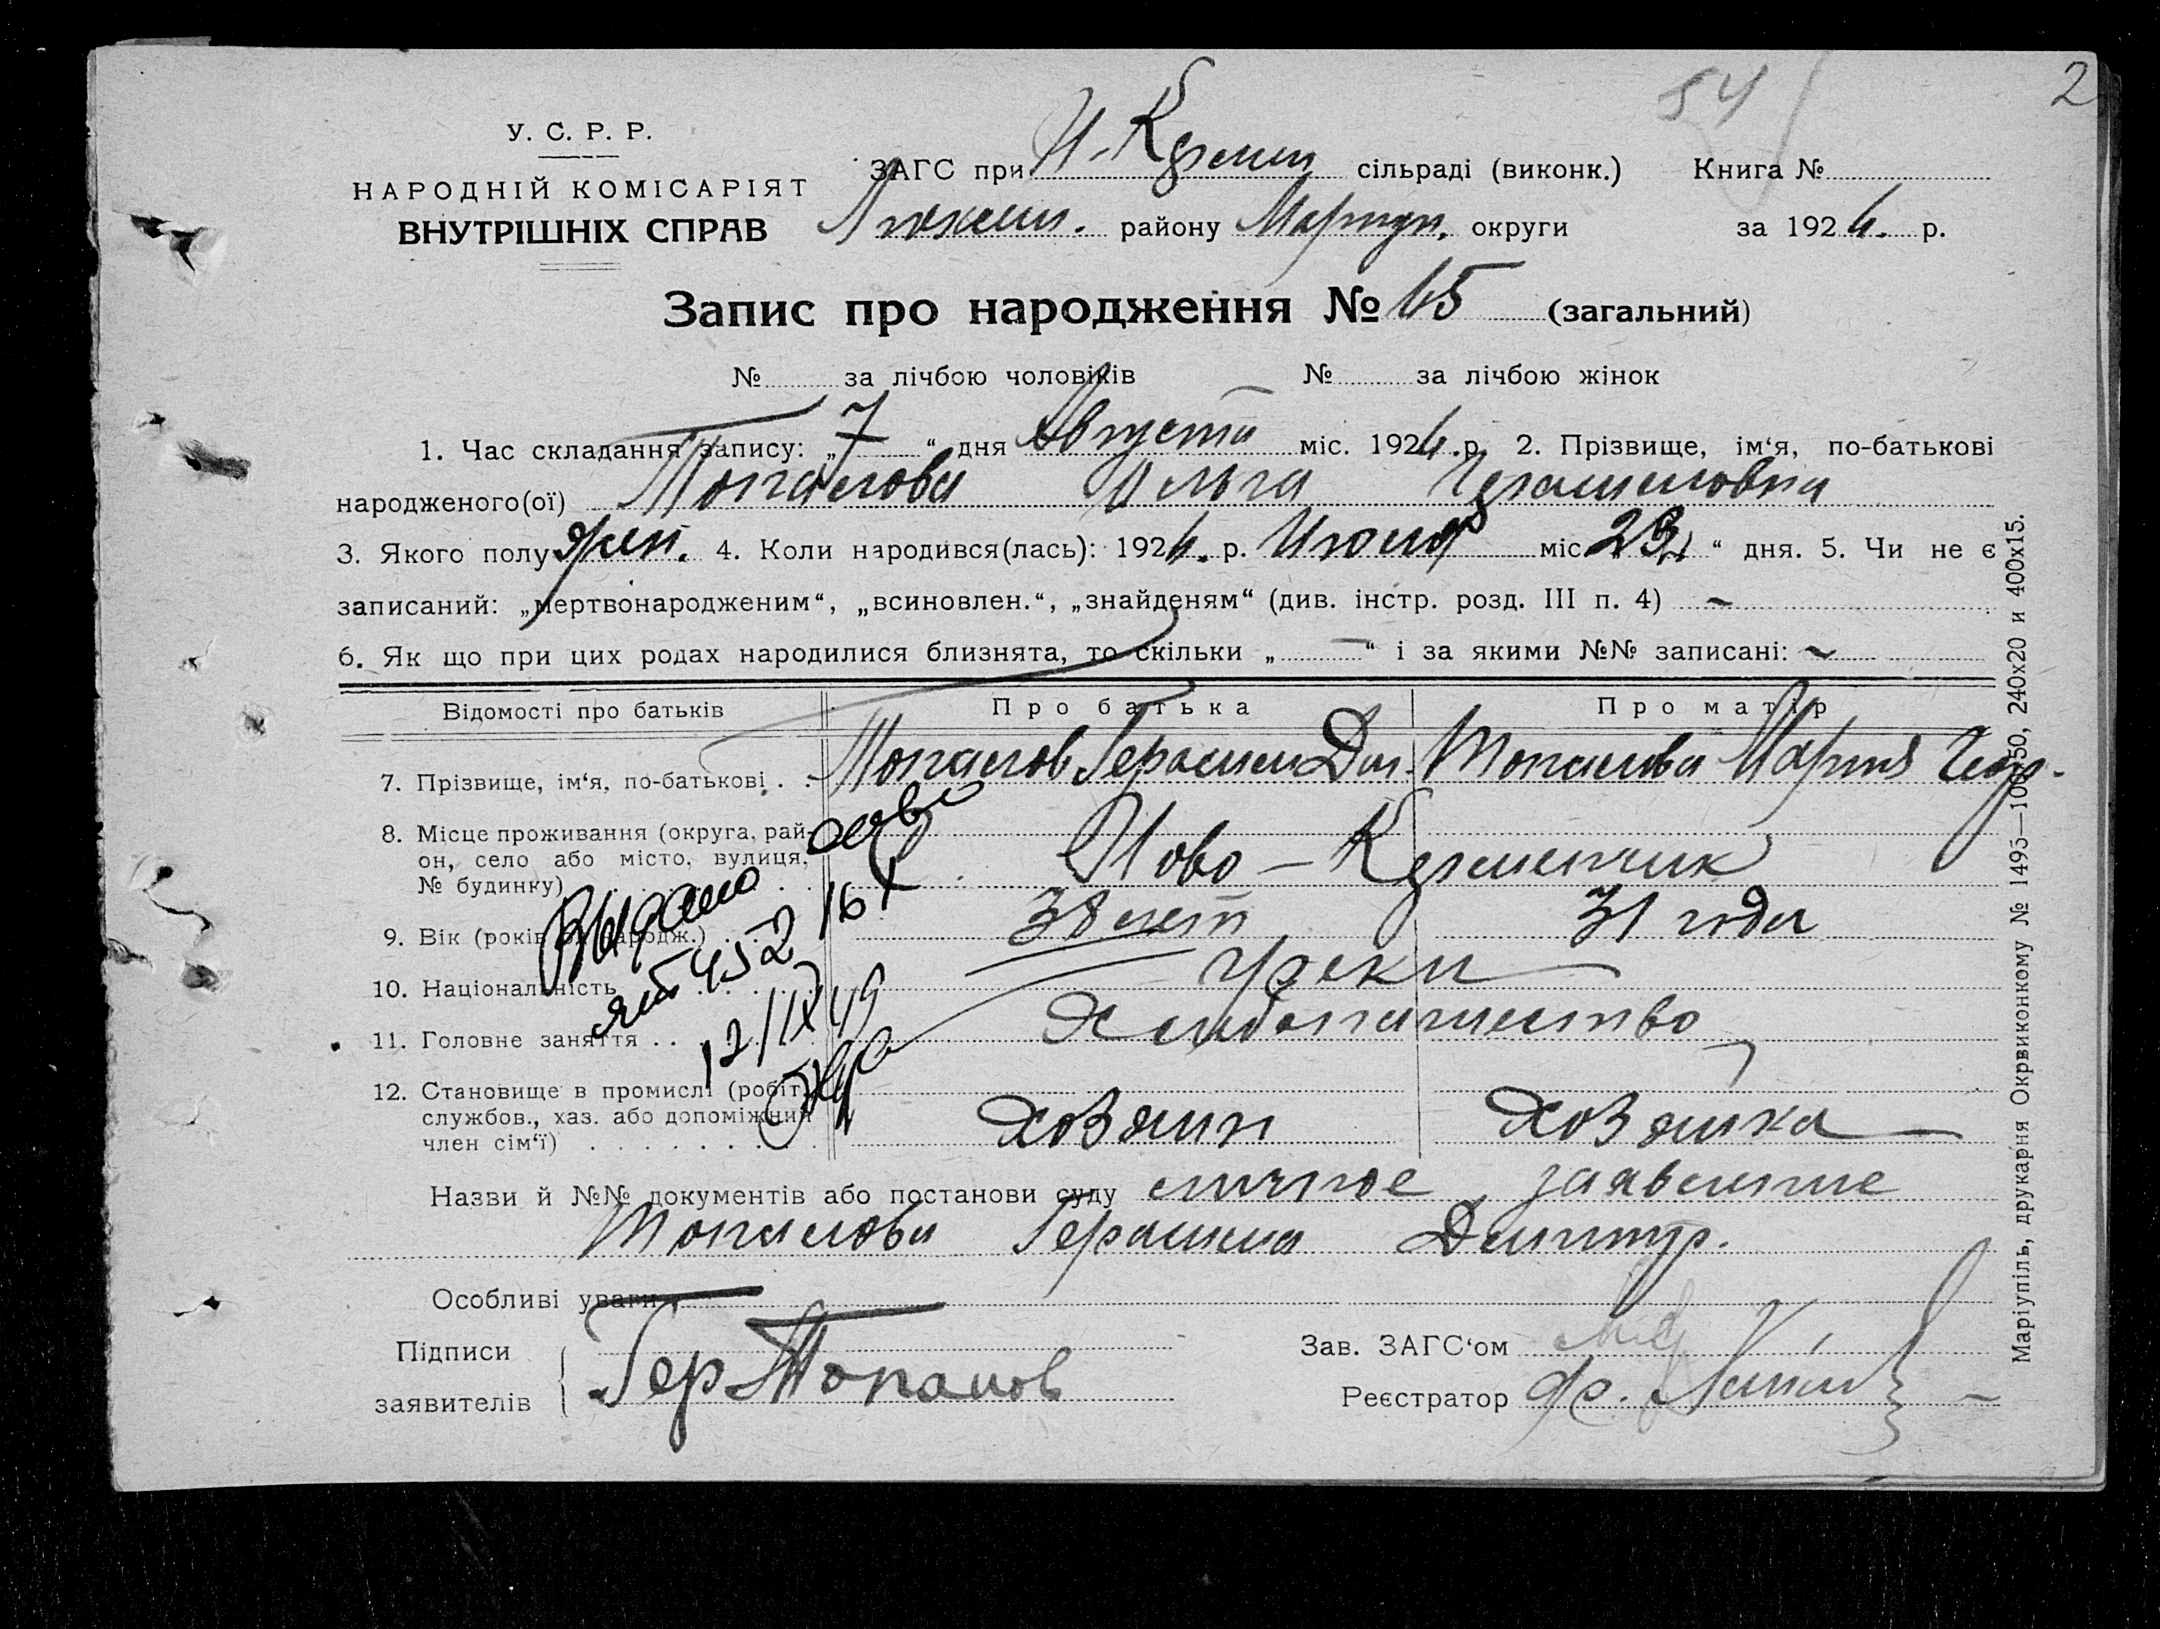 54
2
У. С. Р. Р.
НАРОДНІЙ КОМІСАРІЯТ
ВНУТРІШНІХ СПРАВ
ЗАГС при Н-Кермен сільраді (виконк.) Книга №
району Мариуп. округи за 1924. р.
Запис про народження № 65 (загальний)
№ за лічбою чоловіків № за лічбою жінок
1. Час складання запису: „7“ дня Августа міс. 1924. р. 2. Прізвище, ім‘я, по-батькові
народженого(ої) Топалова Ольга Герасимовна
3. Якого полу жен. 4. Коли народився(лась): 1924. р. Июля міс 23 “ дня. 5. Чи не є
записаний: „мертвонародженим“, „всиновлен.“, „знайденям“ (див. інстр. розд. III п. 4) –
6. Як що при цих родах народилися близнята, то скільки „ — “ і за якими №№ записані: ~
Відомості про батьків Про батька Про матір
7. Прізвище, ім‘я, по-батькові . . Топалов Герасим Дм. Топалова Мария
8. Місце проживання (округа, рай-
он, село або місто, вулиця,
№ будинку) С. Ново-Керменчик
9. Вік (років від народж.) 38 лет 31 года
10. Національність Греки
11. Головне заняття . . Хлебопашество
12. Становище в промислі (робіт.,
службов., хаз. або допоміжний
член сім‘ї) Хозяин Хозяйка
Выдано
452
12/IX 49
Назви й №№ документів або постанови суду личное заявление
Топалова Герасима Димитр.
Особливі уваги
Підписи
заявителів Гер Топалов
Зав. ЗАГС‘ом
Реєстратор
Маріупіль, друкарня Окрвиконкому № 1495—100х50, 240х20 и 400х15.